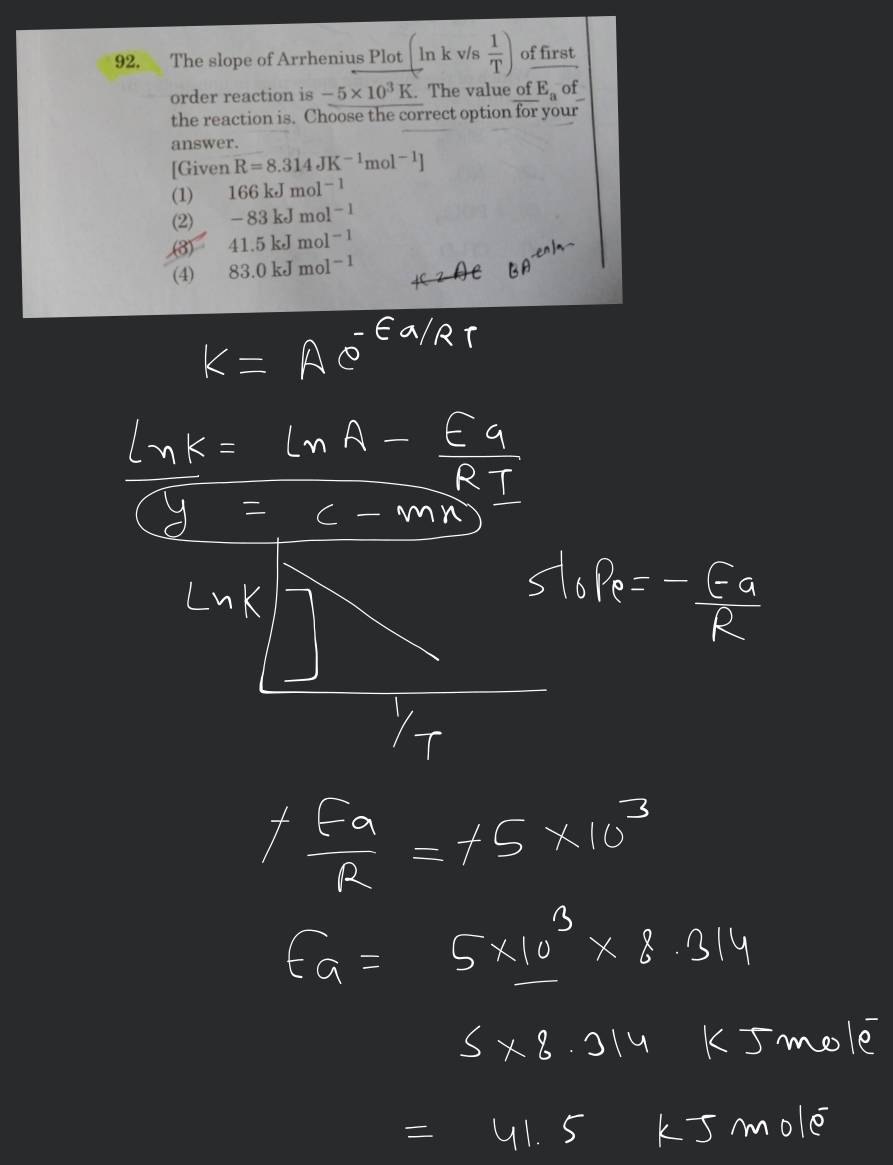 92. The slope of Arrhenius Plot (ln k v/s 1/T) of first
order reaction is −5×10³ K. The value of Eₐ of
the reaction is. Choose the correct option for your
answer.
[Given R=8.314 JK⁻¹mol⁻¹]
(1) 166 kJ mol⁻¹
(2) −83 kJ mol⁻¹
(3) 41.5 kJ mol⁻¹
(4) 83.0 kJ mol⁻¹
K = A e^-Ea/RT
Ln K = Ln A − Ea/RT
y = c − mx
Ln K
slope = − Ea/R
1/T
Ea/R = 5 × 10³
Ea = 5×10³ × 8.314
5 × 8.314 KJ mole⁻
= 41.5 KJ mole⁻